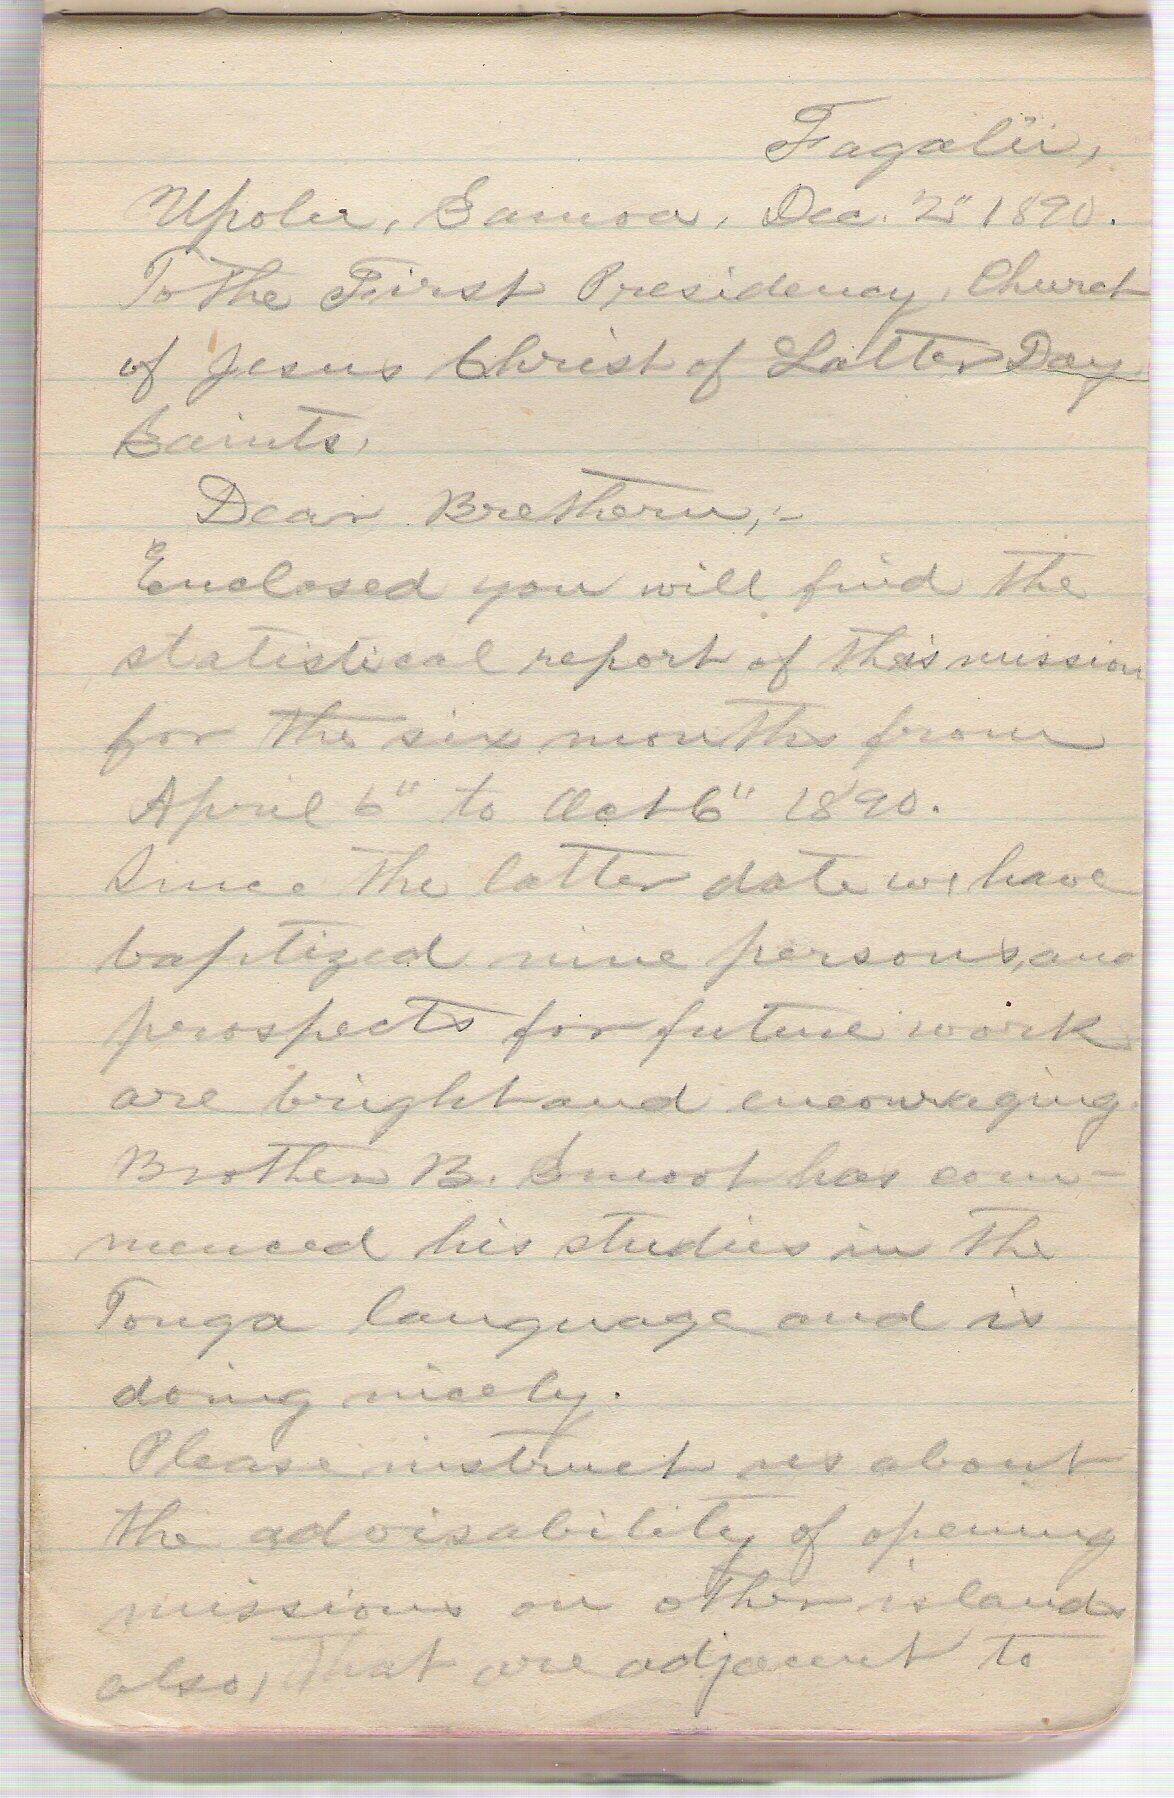 Fagalii,
Upolu, Samoa, Dec. "2" 1890.
To The First Presidency, Church
of Jesus Christ of Latter Day
Saints,
Dear Brethern,:-
Enclosed you will find the
statistical report of this mission
for the six months from
April 6" to Oct 6" 1890.
Since the latter date we have
baptized nine persons, and
prospects for future work
are bright and encouraging.
Brother B. Smoot has com-
menced his studies in the
Tonga language and is
doing nicely.
Please instruct us about
the advisability of opening
missions on other islands
also, that are adjacent to